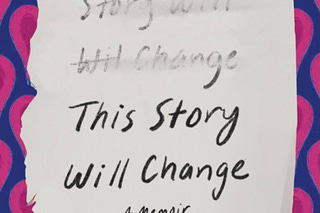 Story Will
Will Change
This Story
Will Change
a memoir